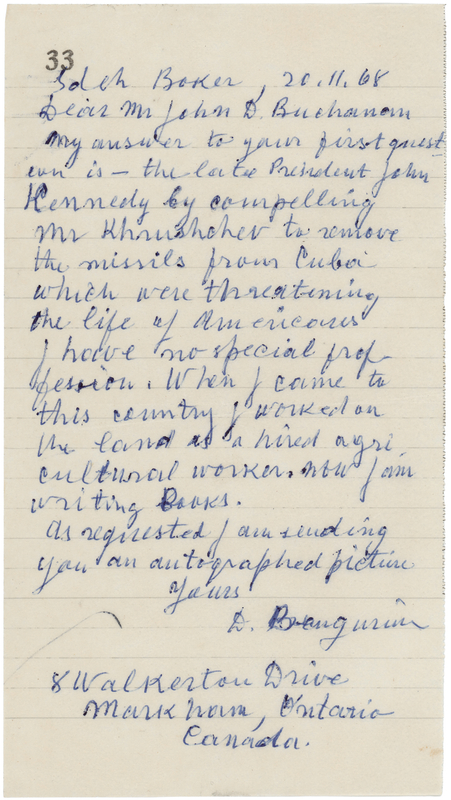 33
Sdeh Boker, 20.11.68
Dear Mr John D. Buchanan
my answer to your first quest
ion is – the late President John
Kennedy by compelling
Mr Khrushchev to remove
the missils from Cuba
which were threatening
the life of Americans
I have no special prof-
fession. When I came to
this country I worked on
the land as a hired agri
cultural worker. now I am
writing Books.
As requested I am sending
you an autographed picture
Yours
D. Ben gurion
8 Walkerton Drive
Markham, Ontario
Canada.